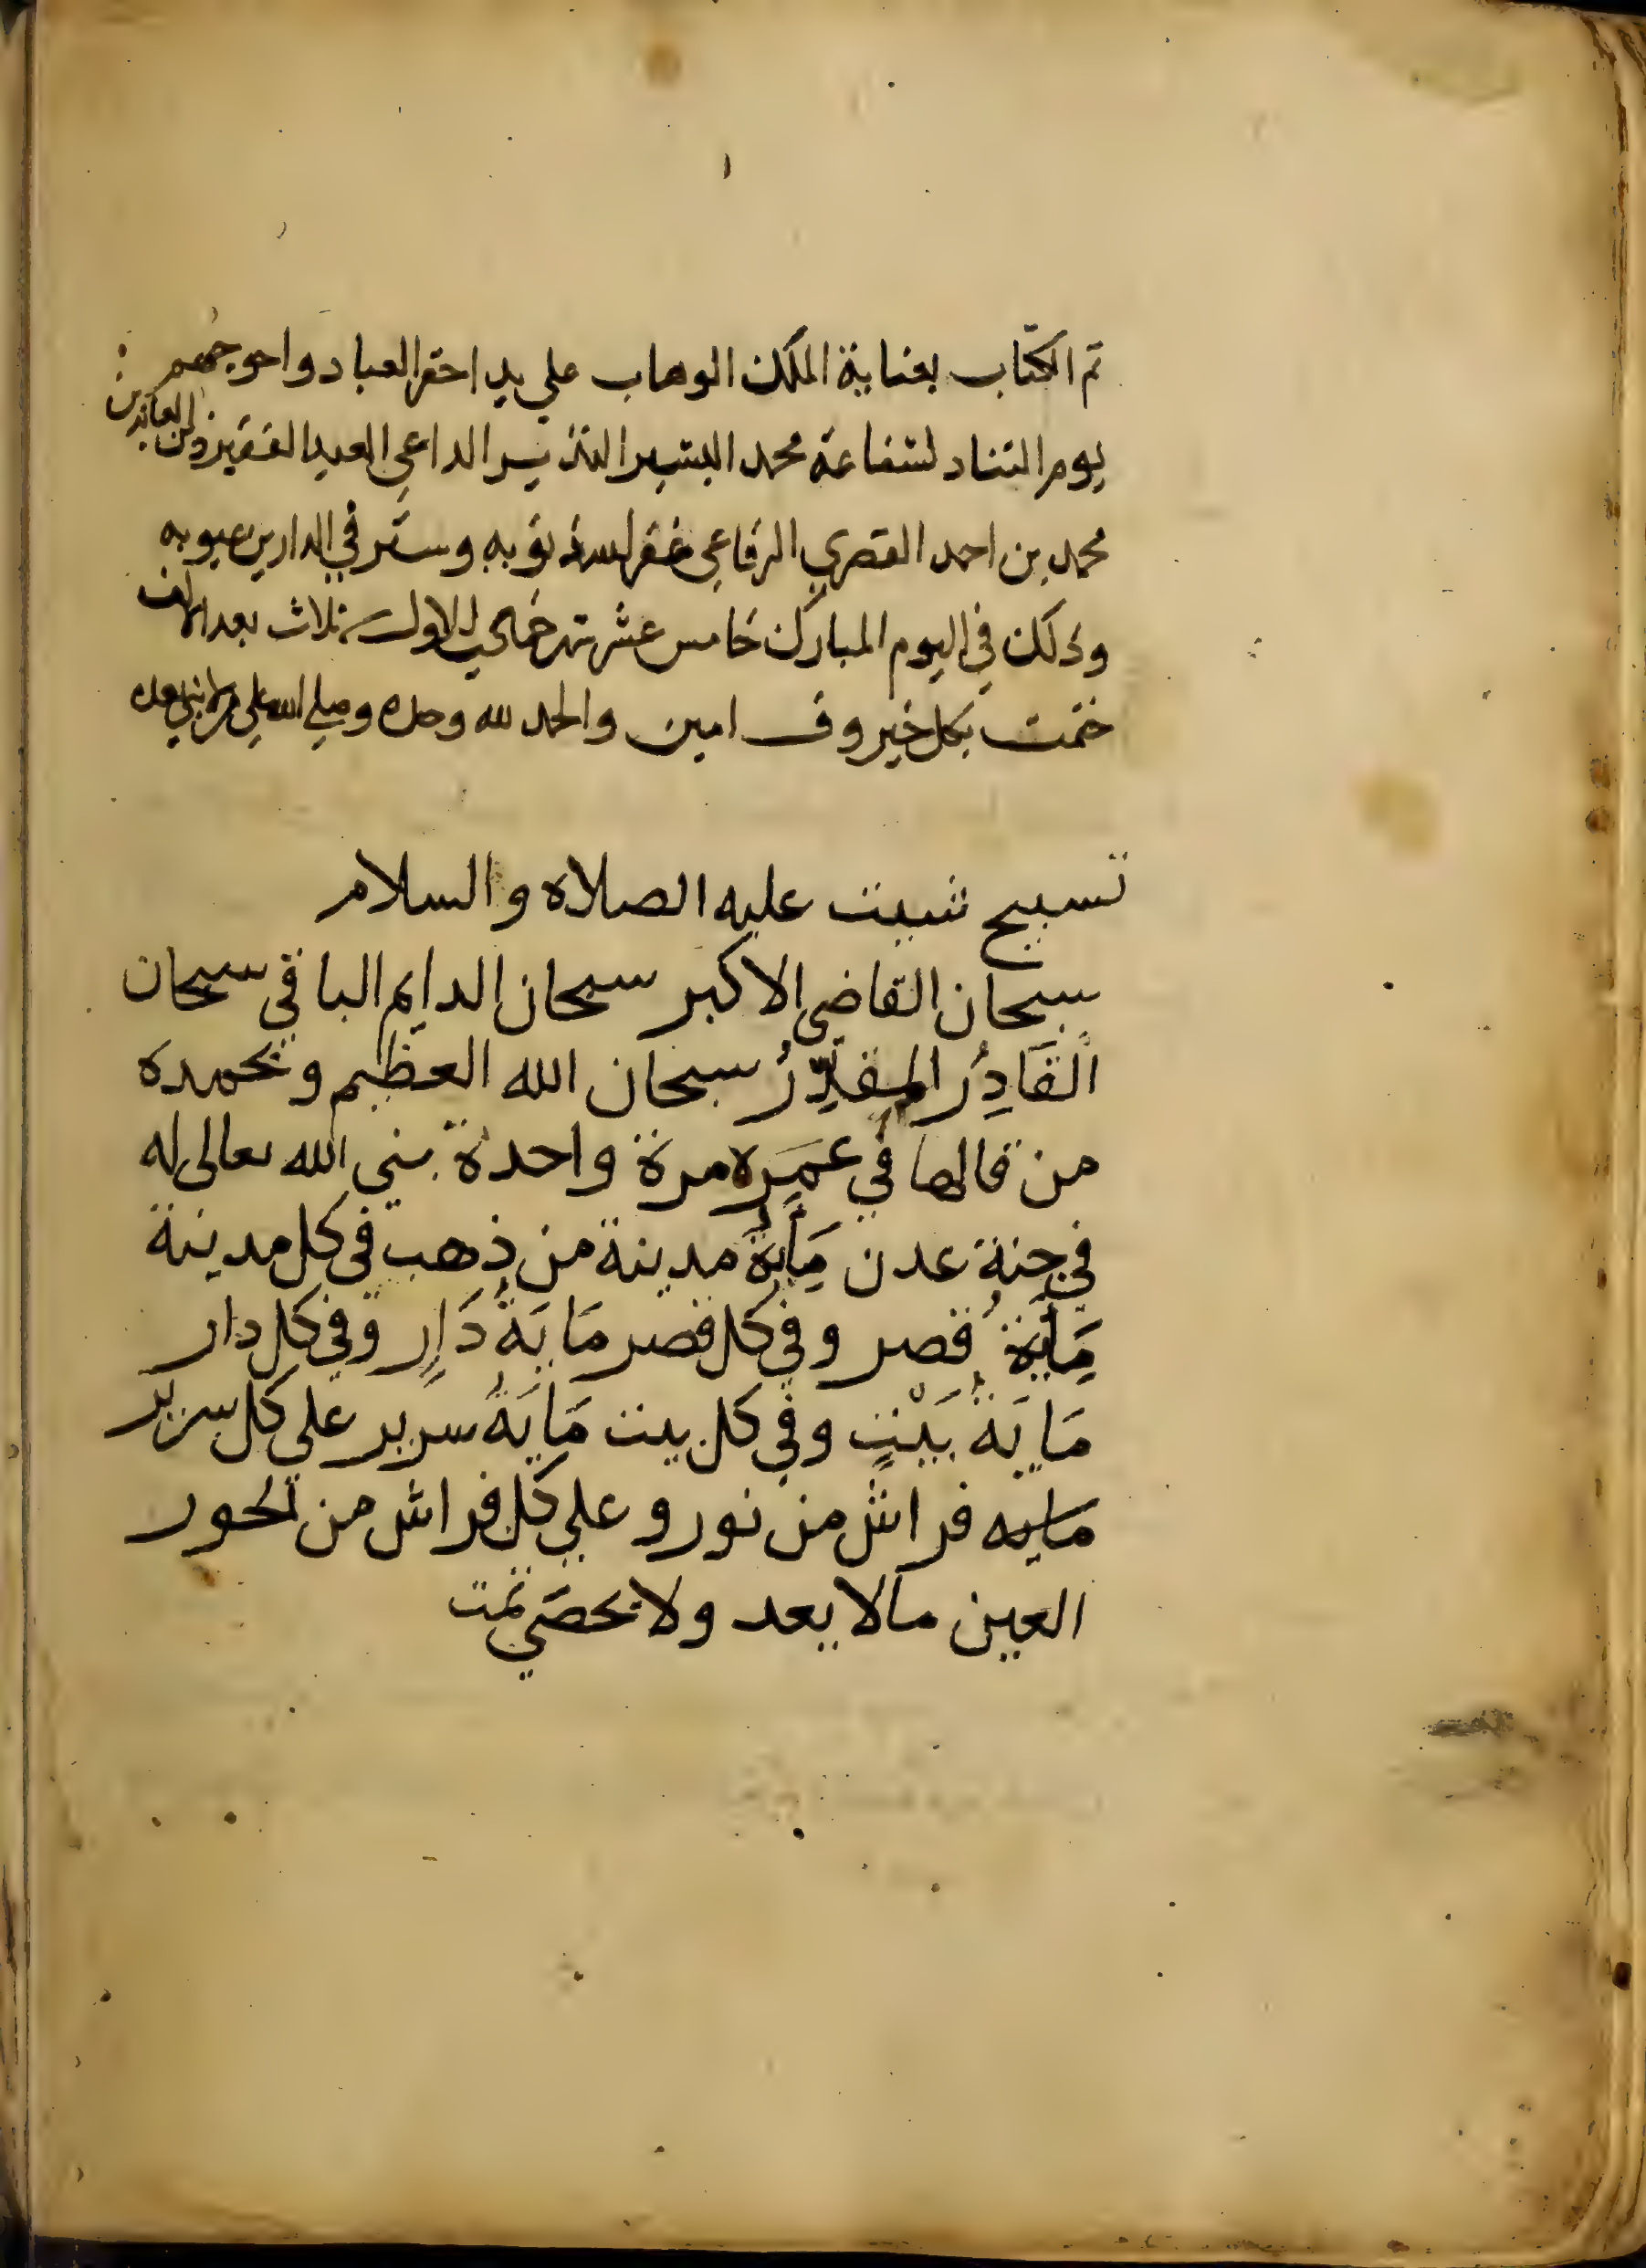 تم الكتاب بعناية الملك الوهاب علي يد احقر العباد واحوجهم
يوم التناد لشفاعة محمد البشير النذير الداعي العبد الفقير
محمد بن احمد القصري الرفاعي غفر الله ذنوبه وستر في الدارين عيوبه
وذلك في اليوم المبارك خامس عشر شهر جمادي الاول سنة ثلاث بعد الالف
ختمت بكل خير وف امين والحمد لله وحده وصلي الله علي من لا نبي بعده
تسبيح شيت عليه الصلاه والسلام
سبحان القاضي الاكبر سبحان الدايم الباقي سبحان
القَادِرُ المقتدِرُ سبحان الله العظيم وبحمده
من قالها في عمَره مرة واحدة بني الله تعالى له
في جنة عدن مَايةُ مدينة من ذهب في كل مدينة
مَايَةُ قصر وفي كل قصر مَايَةُ دَارٍ وفي كل دار
مَايَةُ بَيْتٍ وفي كل بيت مَايَةُ سرير على كل سرير
مايه فراش من نور وعلي كل فراش من الحور
العين مالا يعد ولا يحصَي تمت